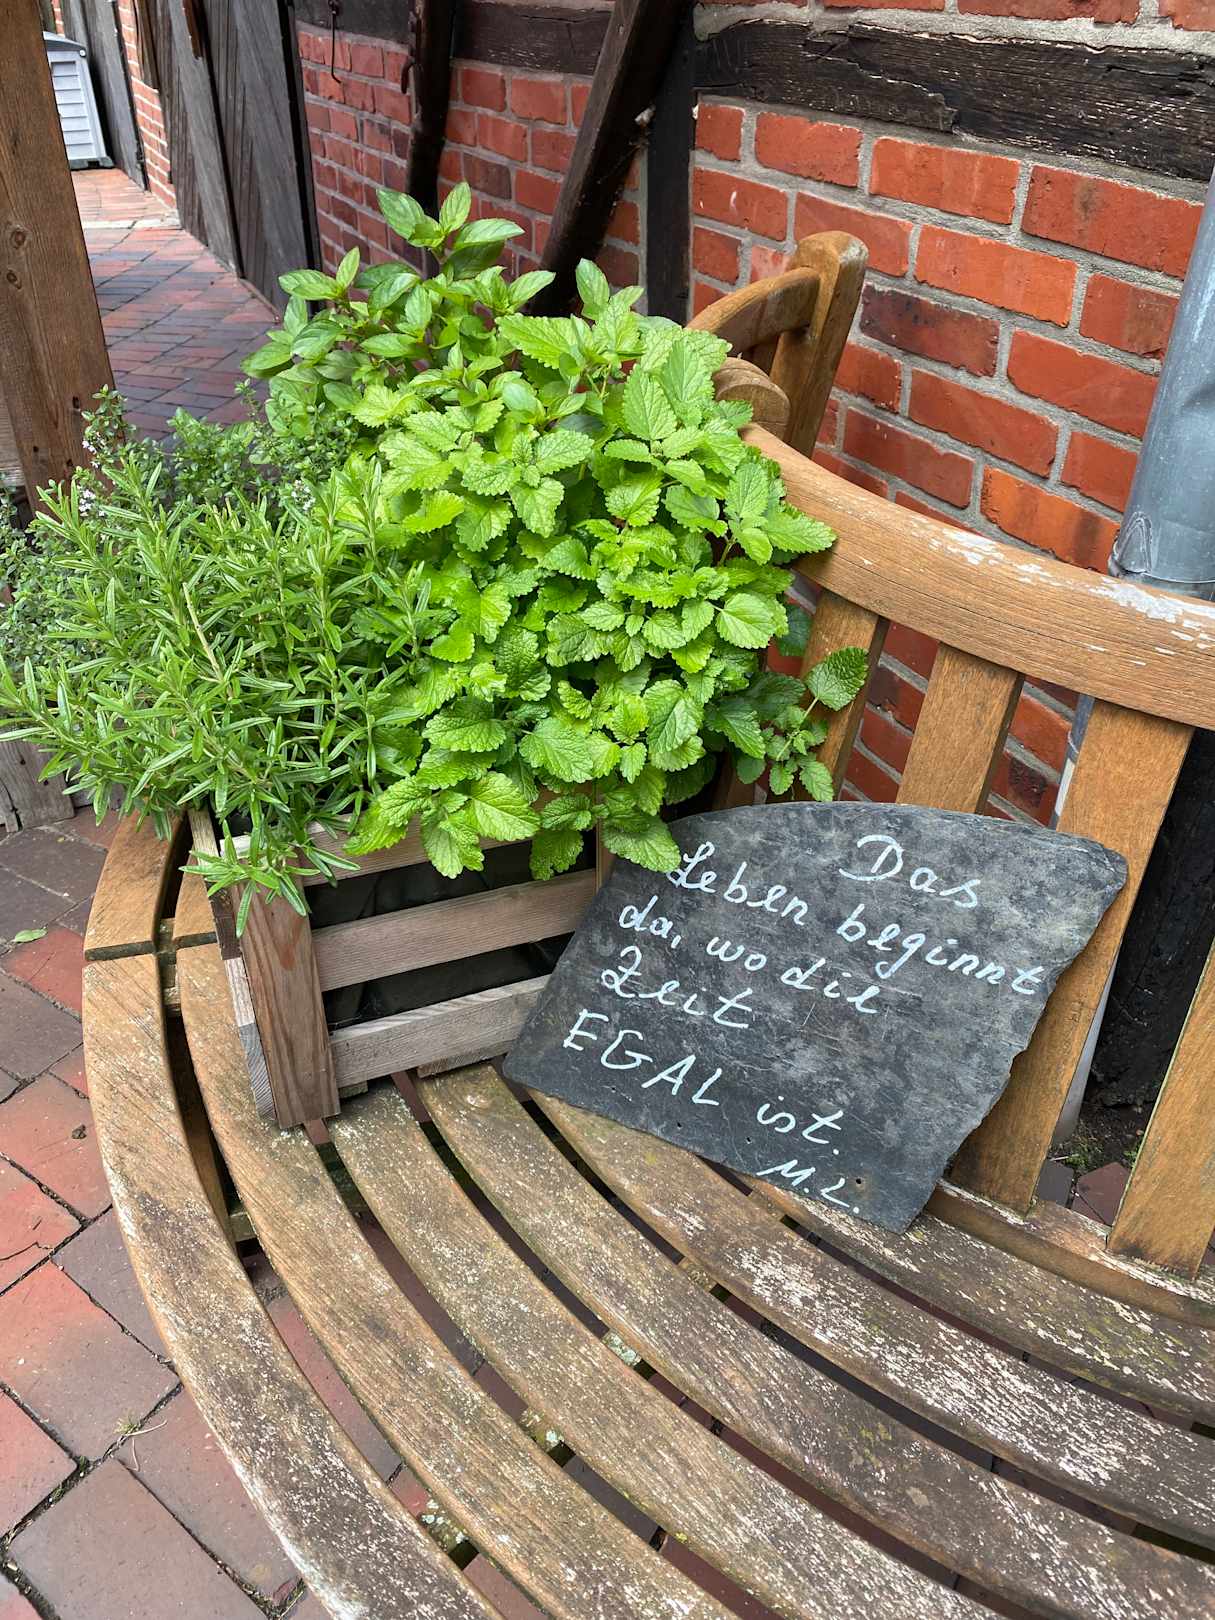 Das
Leben beginnt
da, wo die
Zeit
EGAL ist.
M.L.